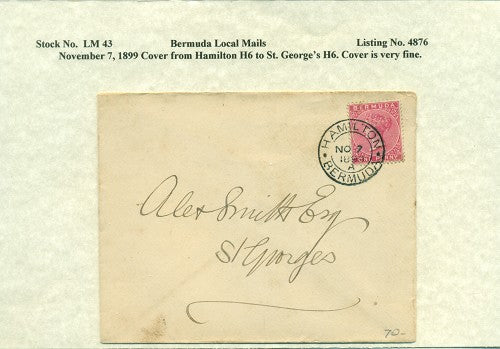 Stock No. LM 43 Bermuda Local Mails Listing No. 4876
November 7, 1899 Cover from Hamilton H6 to St. George's H6. Cover is very fine.
BERMUDA
HAMILTON
NO 7
A
BERMUDA
Alex Smith Esq
St Georges
70-